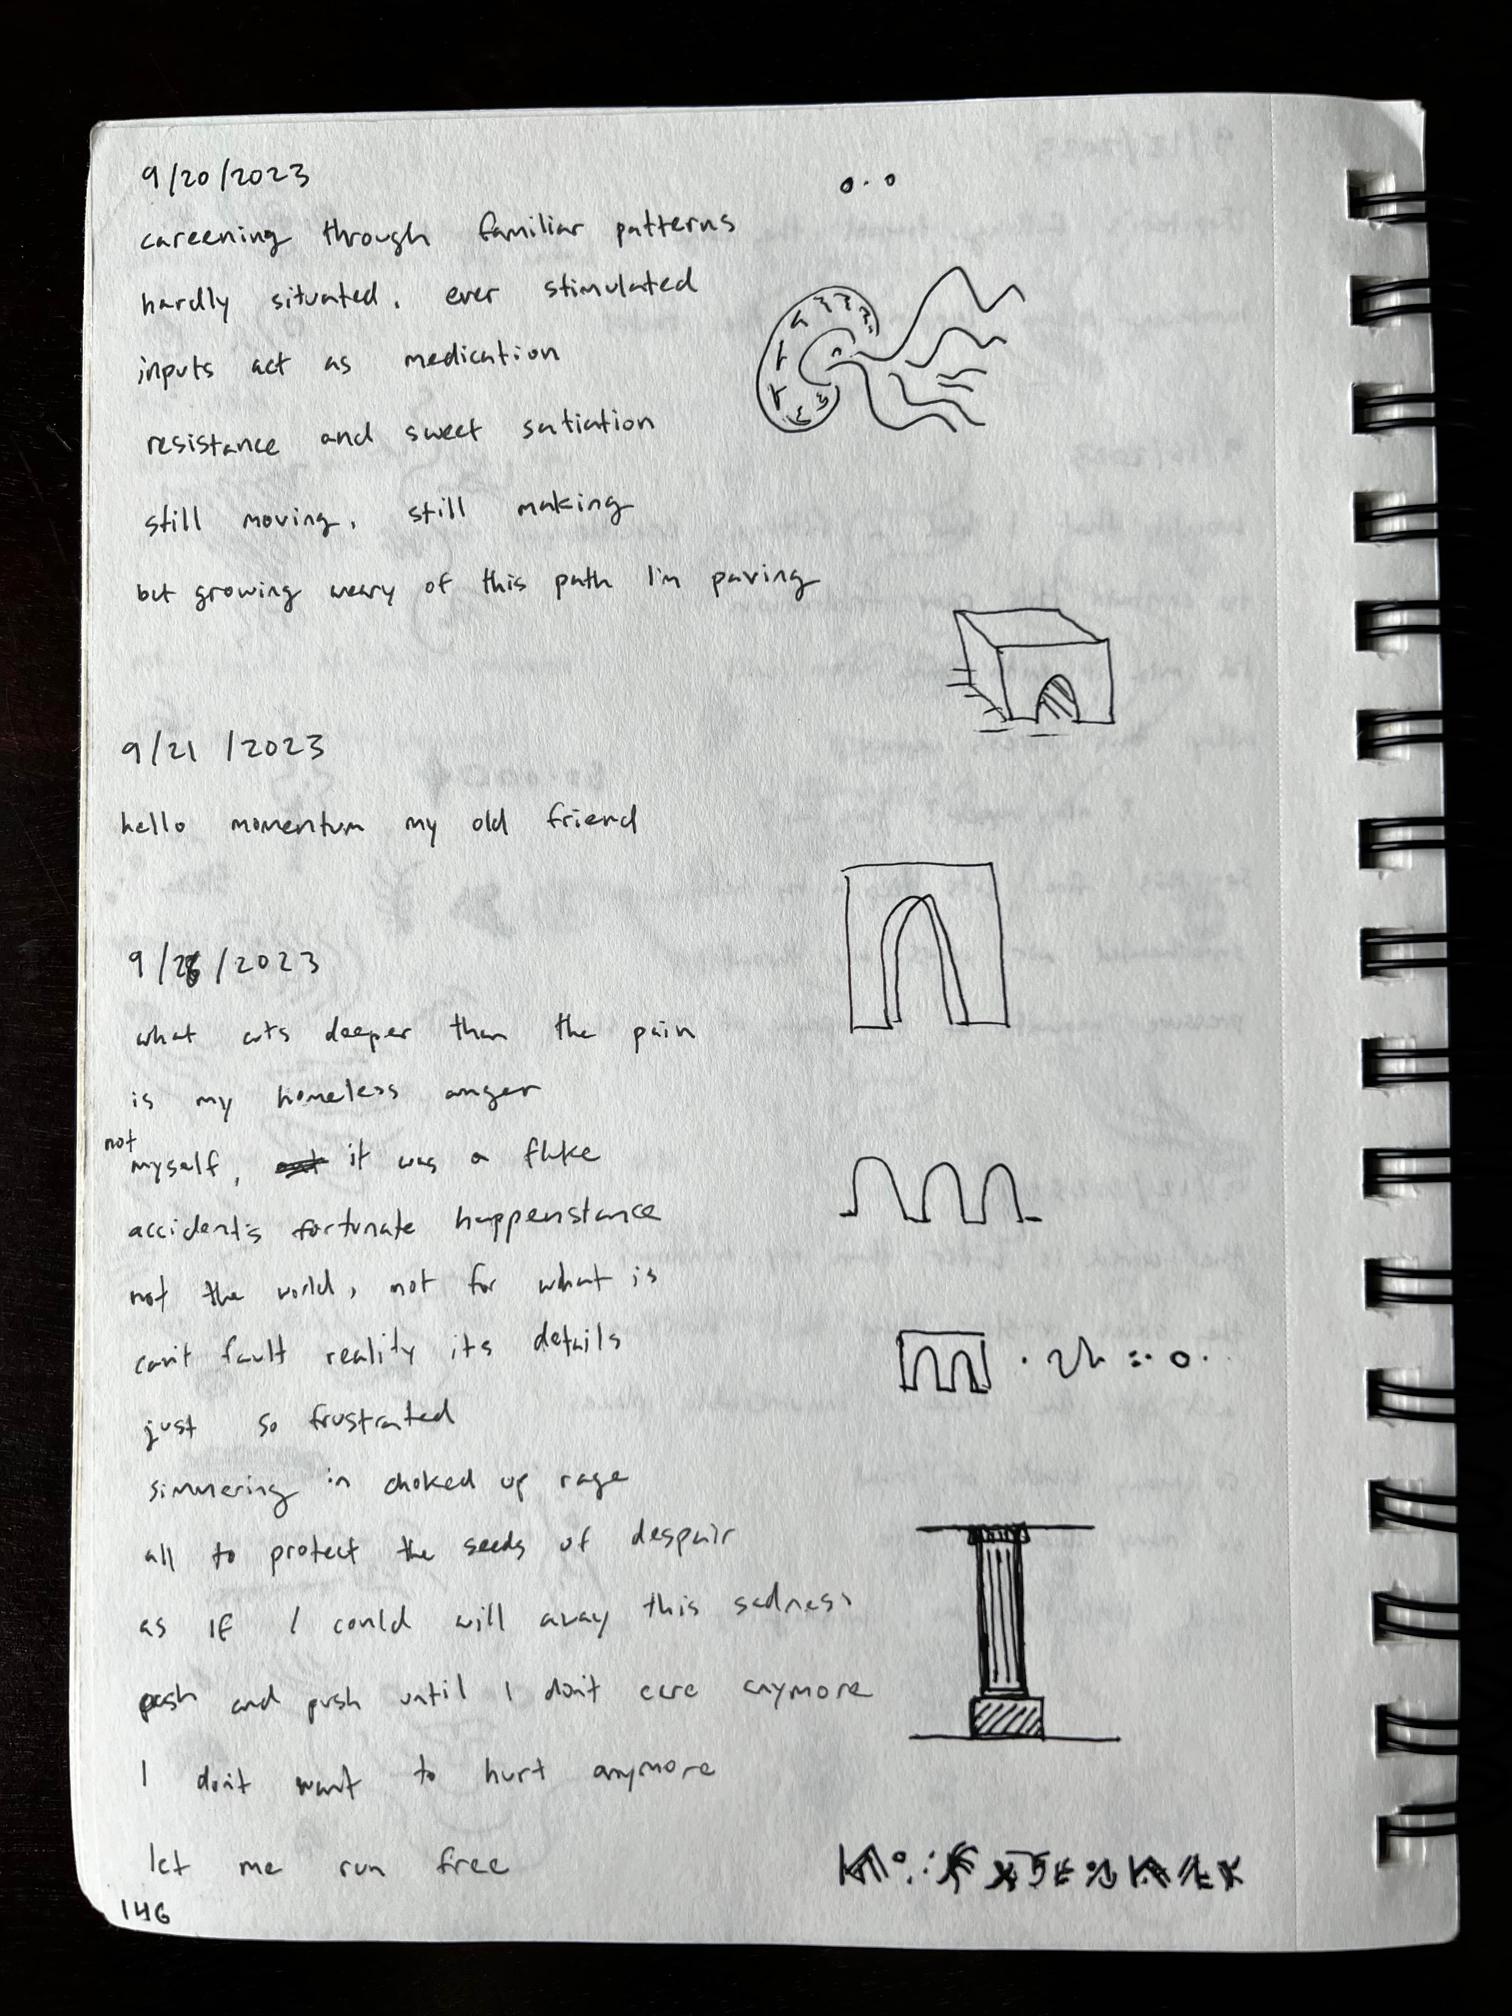 9/20/2023
careening through familiar patterns
hardly situated, ever stimulated
inputs act as medication
resistance and sweet satiation
still moving, still making
but growing weary of this path I'm paving
9/21/2023
hello momentum my old friend
9/26/2023
what cuts deeper than the pain
is my homeless anger
not myself, it was a fluke
accident's fortunate happenstance
not the world, not for what is
can't fault reality its details
just so frustrated
simmering in choked up rage
all to protect the seeds of despair
as if I could will away this sadness
push and push until I don't care anymore
I don't want to hurt anymore
let me run free
146